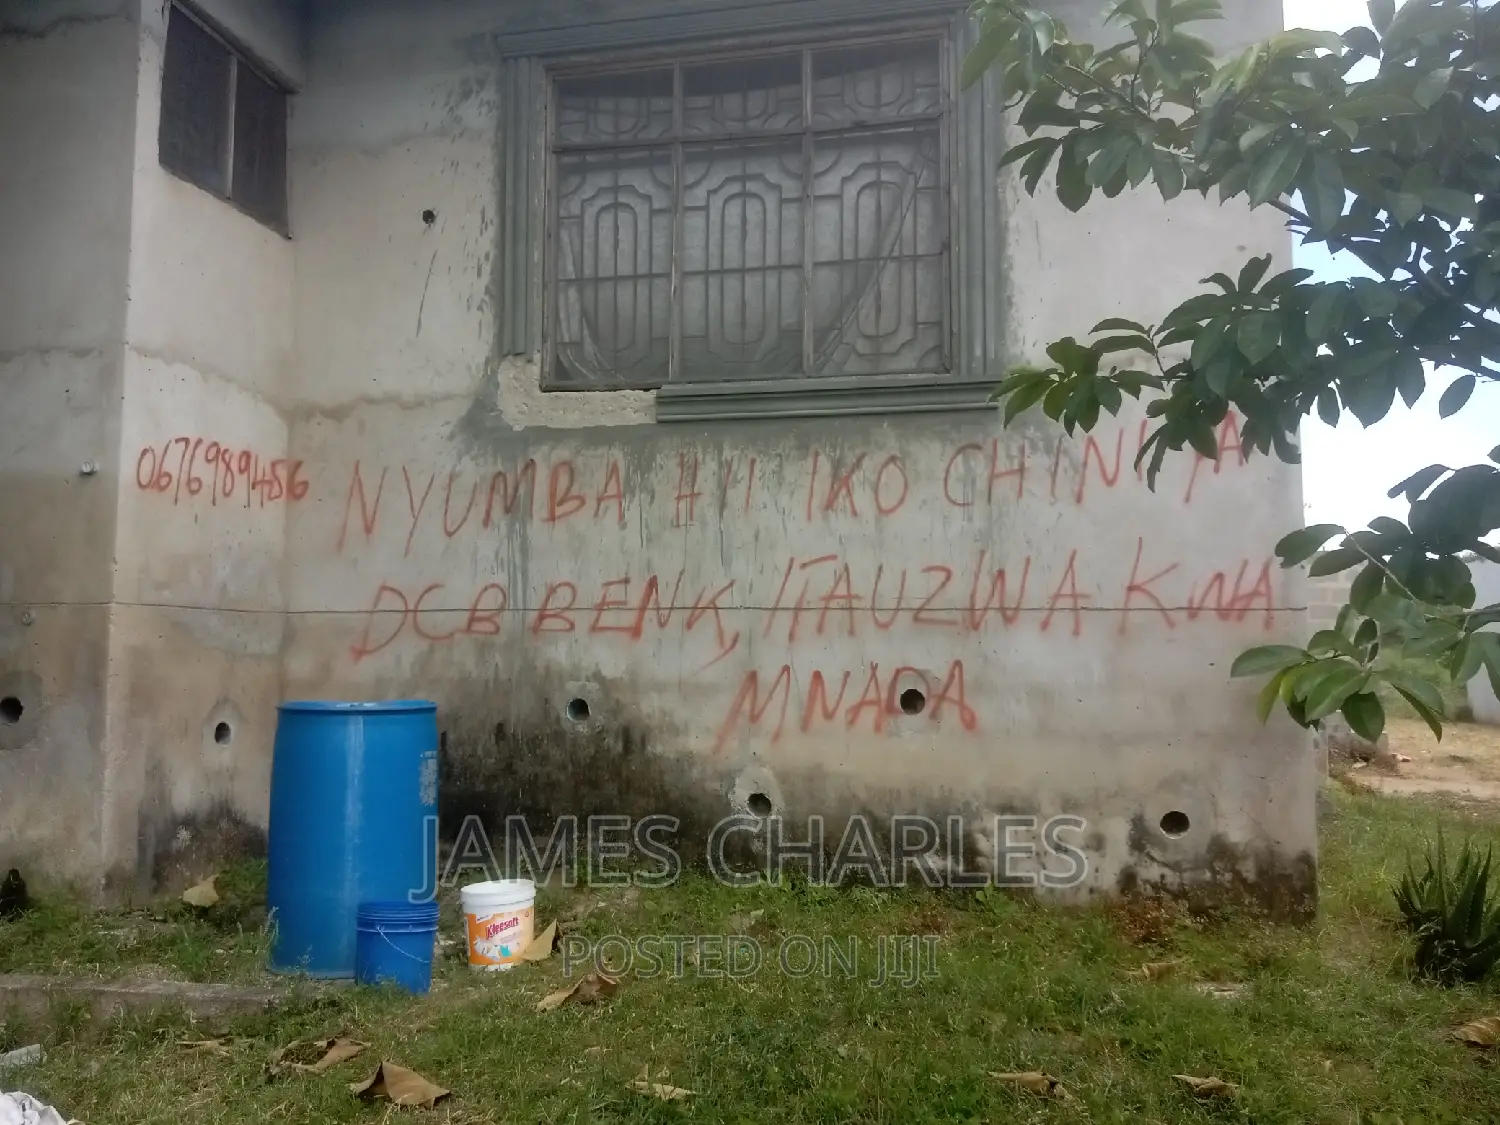 0676989456
NYUMBA HII IKO CHINI YA
DCB BENK, ITAUZWA KWA
MNADA
JAMES CHARLES
Kleesoft
POSTED ON JIJI